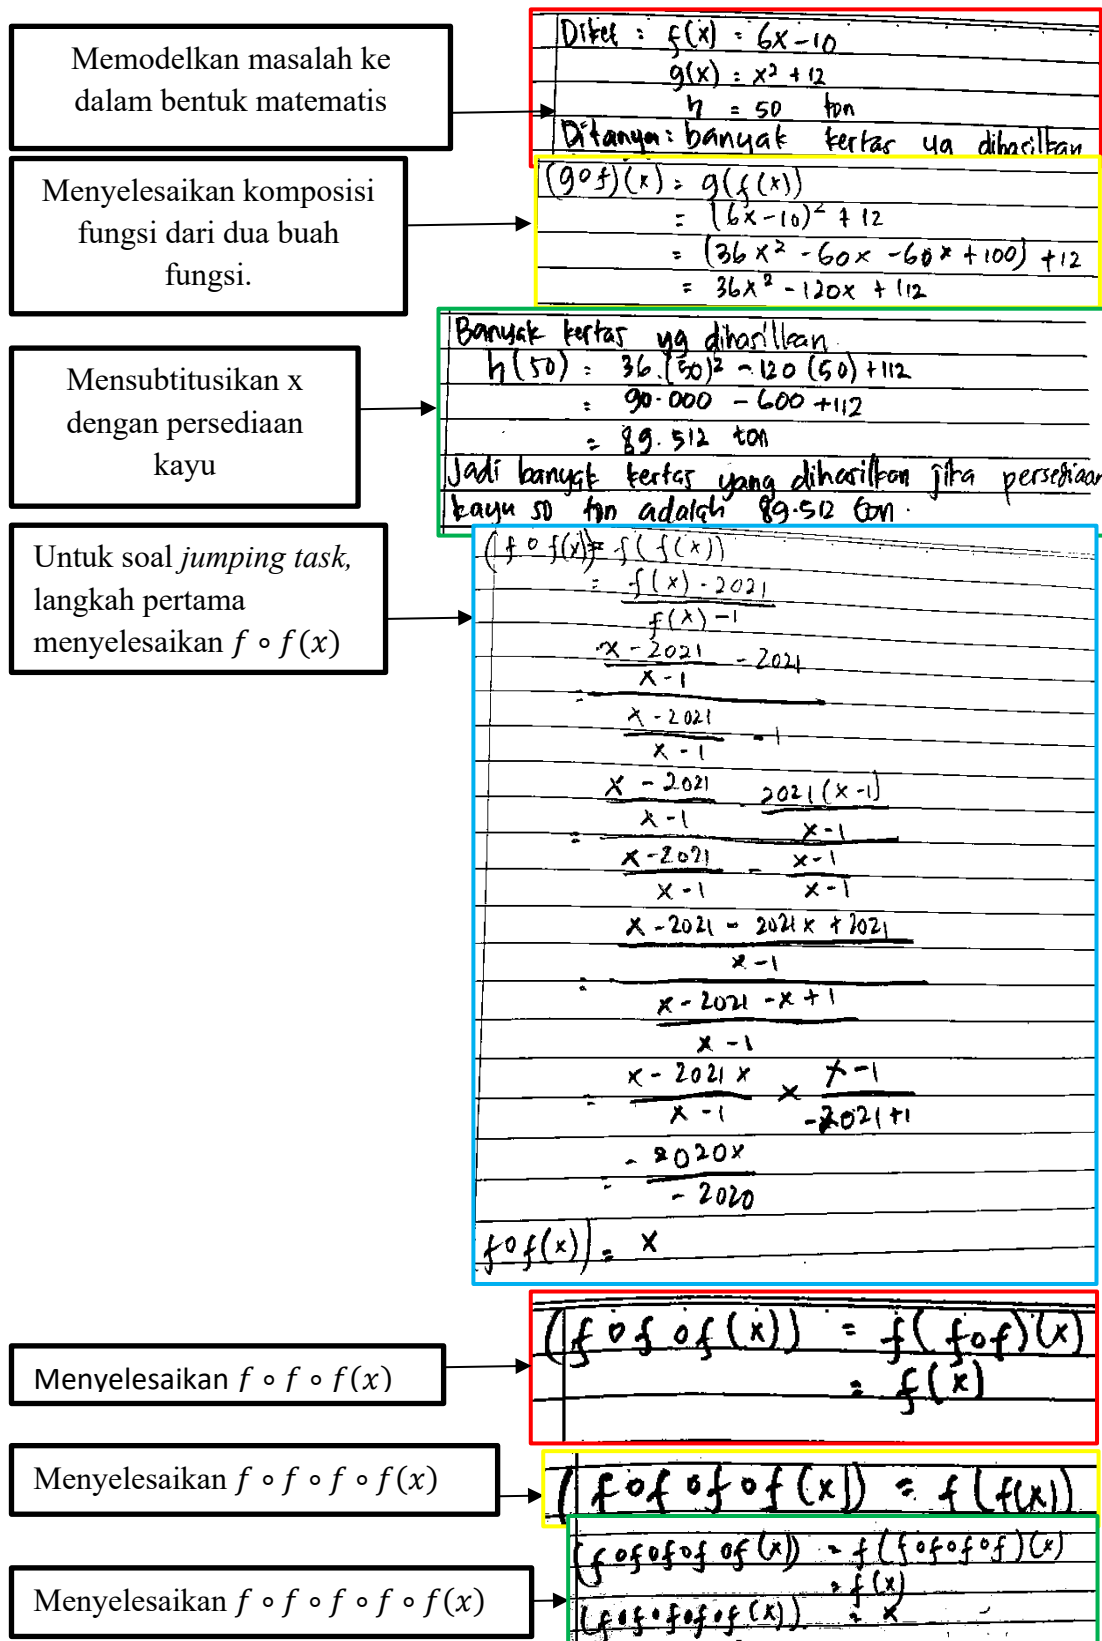 Memodelkan masalah ke
dalam bentuk matematis
Diket : f(x) = 6x - 10
g(x) = x² + 12
h = 50 ton
Ditanya : banyak kertas yg dihasilkan
Menyelesaikan komposisi
fungsi dari dua buah
fungsi.
(gof)(x) = g(f(x))
= (6x-10)² + 12
= (36x² - 60x - 60x + 100) + 12
= 36x² - 120x + 112
Mensubtitusikan x
dengan persediaan
kayu
Banyak kertas yg dihasilkan
h(50) = 36.(50)² - 120(50) + 112
= 90.000 - 600 + 112
= 89.512 ton
Jadi banyak kertas yang dihasilkan jika persediaan
kayu 50 ton adalah 89.512 ton.
Untuk soal jumping task,
langkah pertama
menyelesaikan f ∘ f(x)
(f o f(x)) = f(f(x))
= f(x) - 2021
f(x) - 1
x - 2021 - 2021
x - 1
=
x - 2021 - 1
x - 1
x - 2021 - 2021(x-1)
x - 1 x - 1
=
x - 2021 - x - 1
x - 1 x - 1
x - 2021 - 2021x + 2021
x - 1
=
x - 2021 - x + 1
x - 1
= x - 2021x × x - 1
x - 1 -2021 + 1
= -2020x
-2020
f o f(x)) = x
Menyelesaikan f ∘ f ∘ f(x)
(f o f o f(x)) = f(fof)(x)
= f(x)
Menyelesaikan f ∘ f ∘ f ∘ f(x)
(f o f o f o f(x)) = f(f(x))
Menyelesaikan f ∘ f ∘ f ∘ f ∘ f(x)
(f o f o f o f o f(x)) = f(f o f o f o f)(x)
= f(x)
(f o f o f o f o f(x)) = x